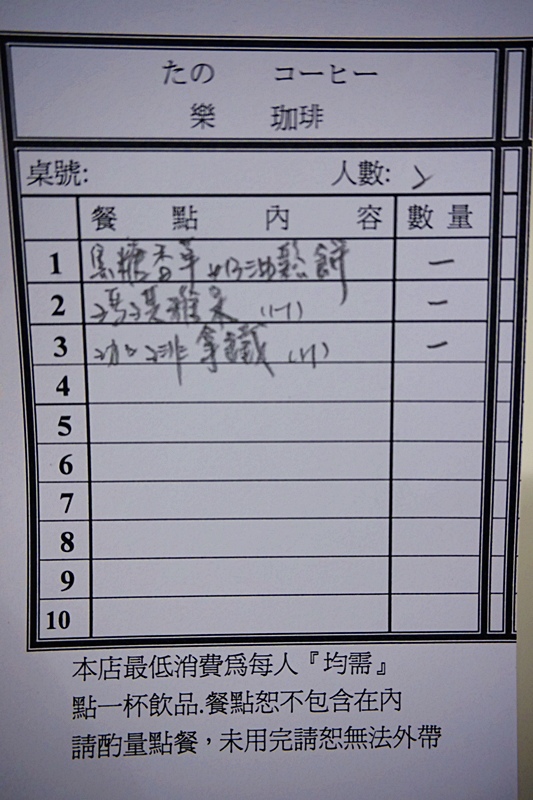 たの コーヒー
樂 珈琲
桌號: 人數: 2
餐點內容 數量
1 黑糖香草奶油鬆餅 一
2 瑪琪雅朵 (小) 一
3 咖啡拿鐵 (小) 一
4
5
6
7
8
9
10
本店最低消費爲每人『均需』
點一杯飲品.餐點恕不包含在內
請酌量點餐，未用完請恕無法外帶